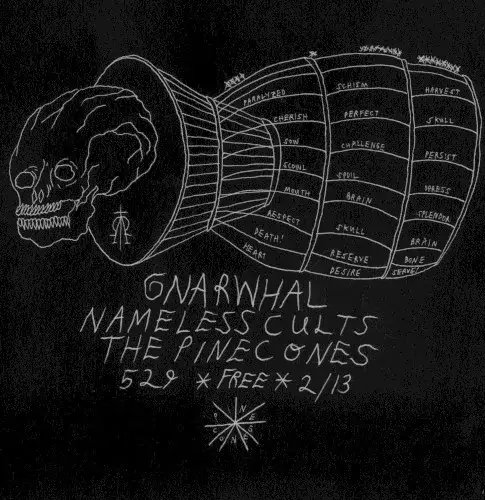 PARALYZED
CHERISH
SOW
SCOWL
MOUTH
RESPECT
DEATH!
HEART
SCHISM
PERFECT
CHALLENGE
SPOIL
BRAIN
SKULL
RESERVE
DESIRE
HARVEST
SKULL
PERSIST
SPLENDOR
BRAIN
BONE
SERVE!
GNARWHAL
NAMELESS CULTS
THE PINECONES
529 * FREE * 2/13